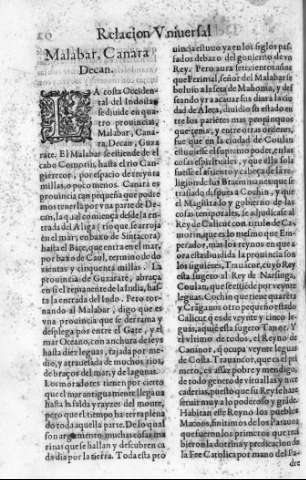 Relacion Vniuersal
Malabar, Canara
Decan.
LA costa Occiden
tal del Indostan
se diuide en qua
tro prouincias,
Malabar, Cana
ra, Decan, Guza
rate. El Malabar se estiende de el
cabo Comorin, hasta el rio Can-
gierecor, por espacio de treynta
millas, o poco menos. Canara es
prouincia tan pequeña que podre
mos tenerla por vna parte de De-
can, la qual comiença desde la en
trada del Aliga (rio que se arroja
en el mar, embaxo de Sintacora)
hasta el Bate, que entra en el mar,
por baxo de Caul, termino de do
zientas y cinquenta millas. La
prouincia de Guzarate, abraça
en si el remanente de la India, has
ta la entrada del Indo. Pero tor-
nando al Malabar, digo que es
vna prouincia que se derrama y
despliega por entre el Gate, y el
mar Oceano, con anchura de seys
hasta diez leguas, tajada por me-
dio, y atrauesada de muchos rios,
de braços del mar, y de lagunas.
Los moradores tienen por cierto
que el mar antiguamente llegaua
hasta la falda y rayzes del monte,
pero que el tiempo ha terraplena
do toda aquella parte. De lo qual
son argumento muchas cosas ma
rinas que se hallan y descubren ca
da dia por la tierra. Toda esta pro
uincia estuuo ya en los siglos pas
sados debaxo del gouierno de vn
Rey. Pero aura setecientos años
que Perimal, señor del Malabar se
boluio a la seta de Mahoma, y des
seando yr a acauar sus dias a la ciu
dad de Meca, diuidio su estado en
tre los parientes mas propinquos
que tenia, y entre otras ordenes,
fue que en la ciudad de Coulan
estuuiesse el supremo poder, en las
cosas espirituales, y que ella sola
fuesse el assiento y cabeça de la re-
ligion de sus Bramines que fue
traslado despues a Cochin, y que
el Magistrado y gobierno de las
cosas temporales, se adjudicasse al
Rey de Calicut con titulo de Ça-
morin, que es lo mesmo que Em-
perador, mas los reynos en que a
ora esta diuidida la prouincia son
los siguientes, Trauancor, cuyo Rey
esta sugeto al Rey de Narsinga,
Coulan, que se estiende por veynte
leguas. Cochin que tiene quarẽta
y Cranganor otro pequeño estado
Calicut estiende veynte y cinco le-
guas, aquien esta sugeto Tanor. Y
el vltimo de todos, el Reyno de
Cananor, q̃ ocupa veynte leguas
de Costa. Trauancor, que es el pri
mero, es assaz pobre y mendigo,
de todo genero de vituallas y mer
caderias, puesto que su Rey se haze
seruir muy a lo poderoso y grãde.
Habitan este Reyno los pueblos
quefueron los primeros que reci
bieron la dotrina y predicacion de
la Fee Catolica por mano del Pa-
dre